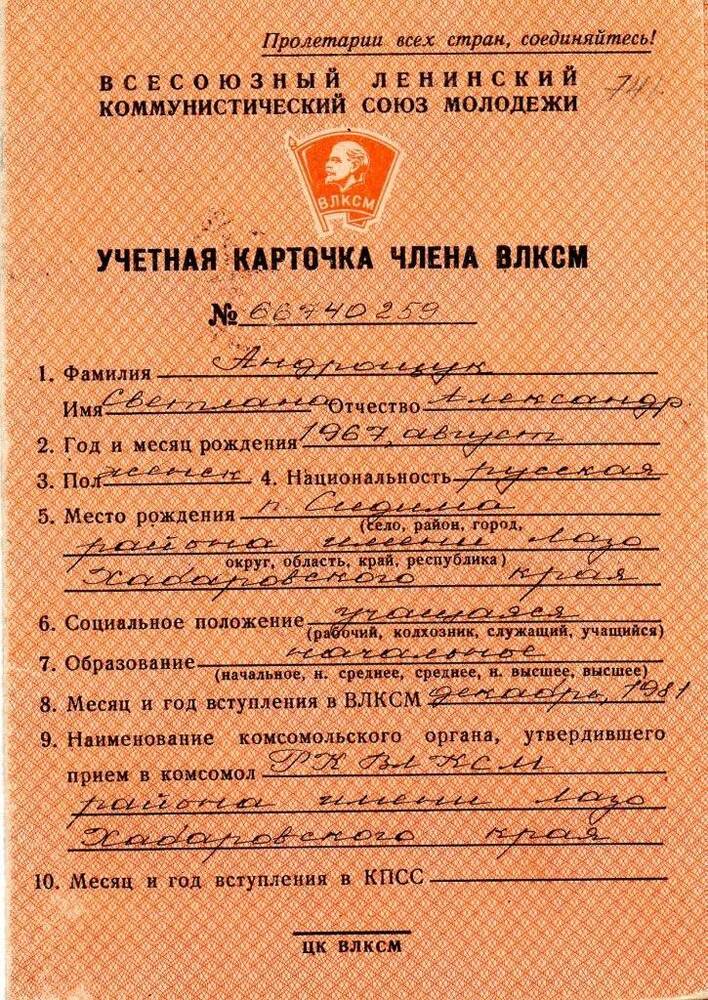 Пролетарии всех стран, соединяйтесь!
ВСЕСОЮЗНЫЙ ЛЕНИНСКИЙ
КОММУНИСТИЧЕСКИЙ СОЮЗ МОЛОДЕЖИ
74
ВЛКСМ
УЧЕТНАЯ КАРТОЧКА ЧЛЕНА ВЛКСМ
№ 66740259
1. Фамилия Андрощук
Имя Светлана Отчество Александр.
2. Год и месяц рождения 1967, август
3. Пол женск 4. Национальность русская
5. Место рождения п. Сидима
(село, район, город,
района имени Лазо
округ, область, край, республика)
Хабаровского края
6. Социальное положение учащаяся
(рабочий, колхозник, служащий, учащийся)
7. Образование начальное
(начальное, н. среднее, среднее, н. высшее, высшее)
8. Месяц и год вступления в ВЛКСМ декабрь, 1981
9. Наименование комсомольского органа, утвердившего
прием в комсомол РК ВЛКСМ
района имени Лазо
Хабаровского края
10. Месяц и год вступления в КПСС
ЦК ВЛКСМ